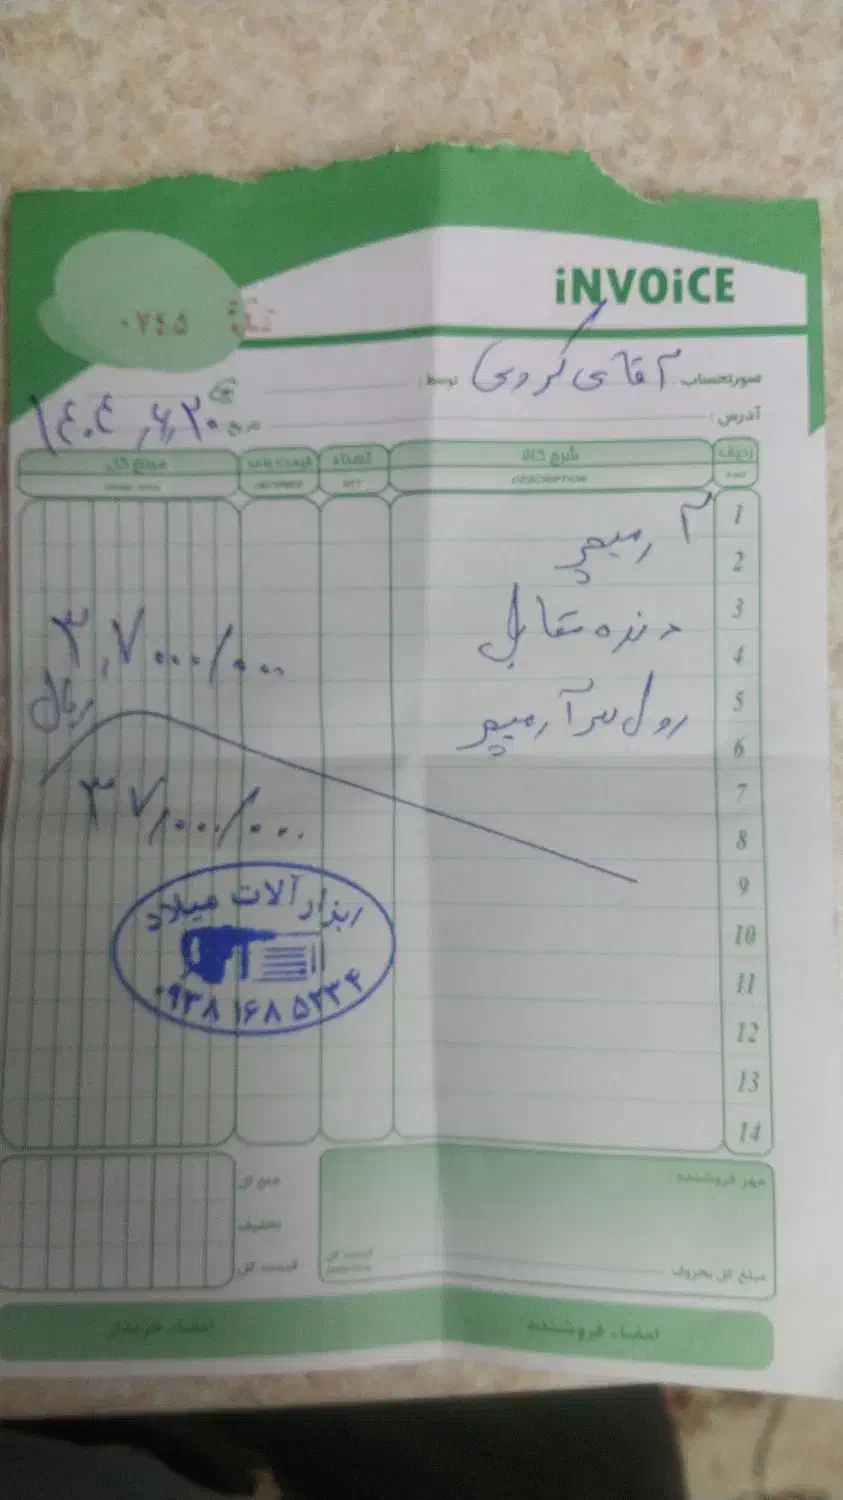 iNVOiCE
۰۷۴۵
صورتحساب: آقای کردی توسط:
آدرس:
تاریخ ۱۴۰۴,۶,۲۰
ردیف شرح کالا تعداد قیمت واحد مبلغ کل
DESCRIPTION
1
آرمیچر
2
3
دنده مقابل
4
۳,۷۰۰۰/۰۰۰
ریال
5
رول سر آرمیچر
6
7
۳۷,۰۰۰/۰۰۰
8
9
ابزارآلات میلاد
10
11
۰۹۳۸ ۱۶۸ ۵۲۳۴
12
13
14
مهر فروشنده:
جمع کل
تخفیف
مبلغ کل بحروف
قیمت کل
امضاء فروشنده
امضاء خریدار